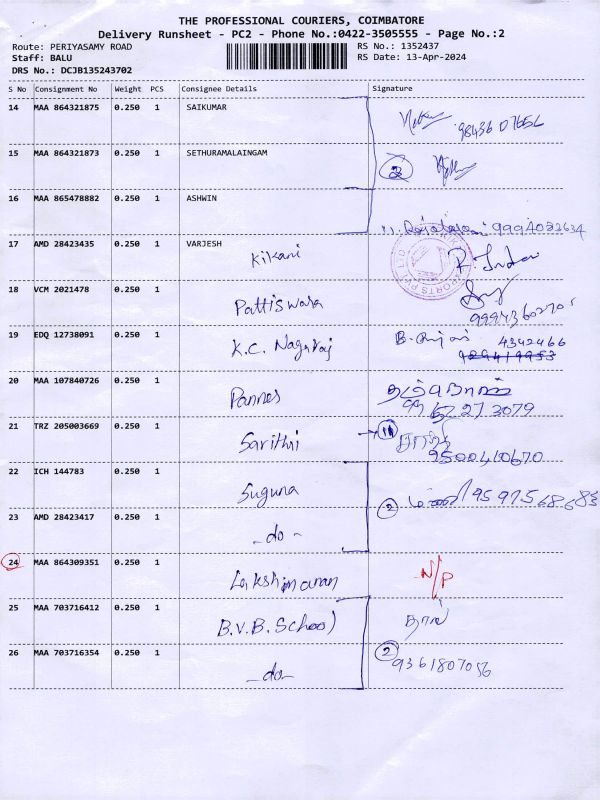 THE PROFESSIONAL COURIERS, COIMBATORE
Delivery Runsheet - PC2 - Phone No.:0422-3505555 - Page No.:2
Route: PERIYASAMY ROAD
RS No.: 1352437
Staff: BALU
RS Date: 13-Apr-2024
DRS No.: DCJB135243702
S No Consignment No Weight PCS Consignee Details Signature
14 MAA 864321875 0.250 1 SAIKUMAR
15 MAA 864321873 0.250 1 SETHURAMALAINGAM
2
16 MAA 865478882 0.250 1 ASHWIN
9994022634
17 AMD 28423435 0.250 1 VARJESH
Kikani
18 VCM 2021478 0.250 1
Pattiswara
19 EDQ 12738091 0.250 1
K.C. Nagaraj 4342466
20 MAA 107840726 0.250 1
Pannes
21 TRZ 205003669 0.250 1
Sarithai 9500410670
22 ICH 144783 0.250 1
Suguna 2
23 AMD 28423417 0.250 1
-do-
24 MAA 864309351 0.250 1
Lakshmanan N/P
25 MAA 703716412 0.250 1
B.V.B. School
26 MAA 703716354 0.250 1 2
-do- 9361807056